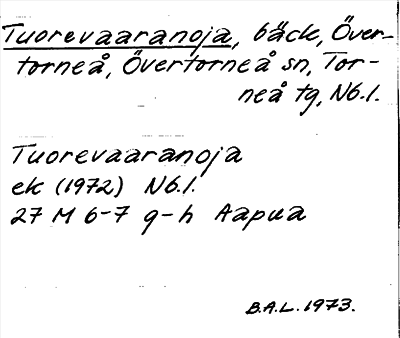 Tuorevaaranoja, bäck, Över-
torneå, Övertorneå sn, Tor-
neå tg, Nb.l.
Tuorevaaranoja
ek (1972) Nb.l.
27 M 6-7 g-h Aapua
B.A.L. 1973.